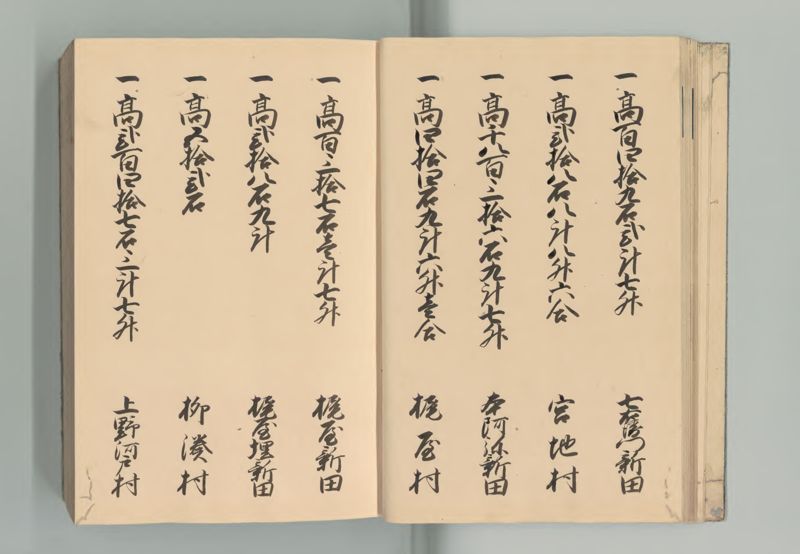 一高百四拾九石弐斗七升
七左衛門新田
一高弐拾八石八斗八升六合
宮地村
一高千八百三拾六石九斗七升
本阿弥新田
一高四拾四石九斗六升壱合
梶屋村
一高百三拾七石壱斗七升
梶屋新田
一高弐拾八石九斗
梶屋埋新田
一高六拾弐石
柳湊村
一高弐百四拾七石三斗七升
上野河戸村